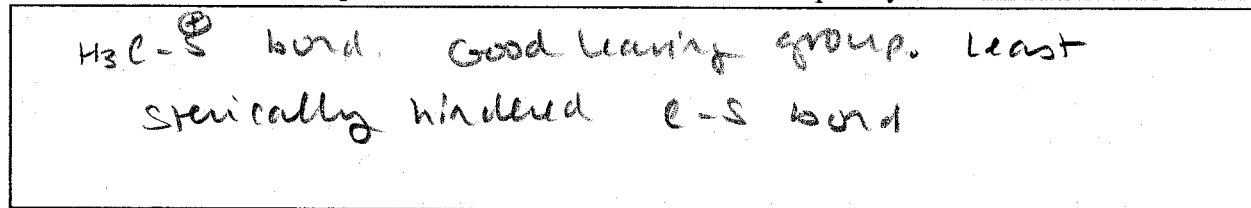 H3C-S⊕ bond. Good leaving group. Least
sterically hindered C-S bond